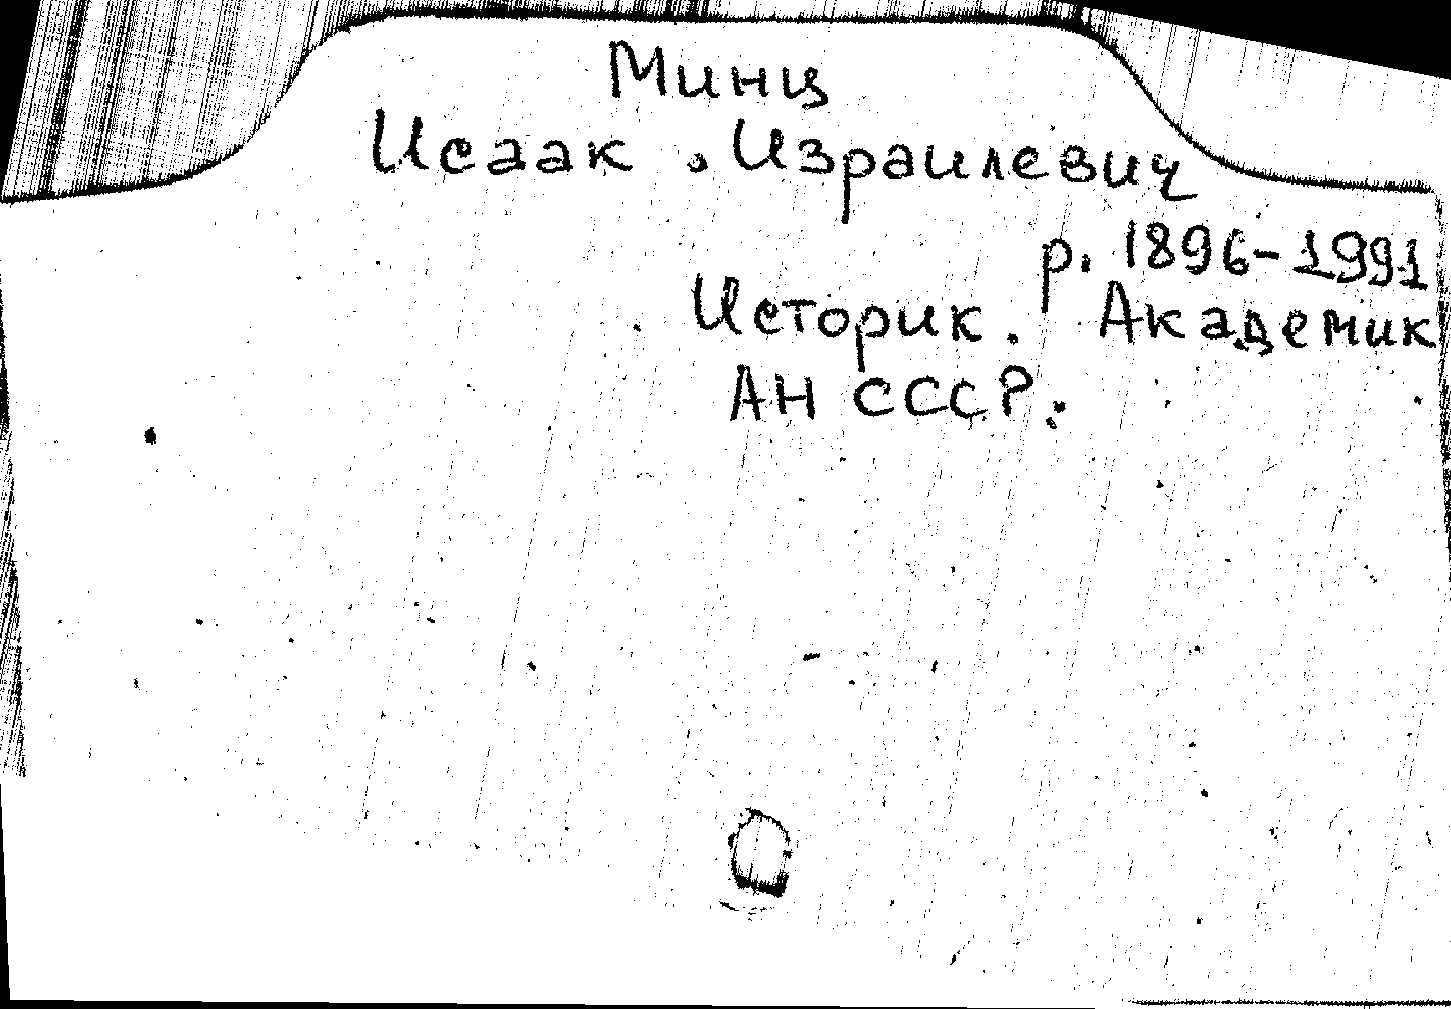 Минц
Исаак . Израилевич
р. 1896-1991
Историк. Академик
АН СССР.